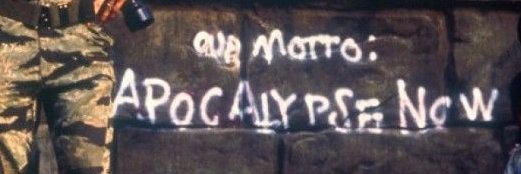 OUR MOTTO:
APOCALYPSE NOW